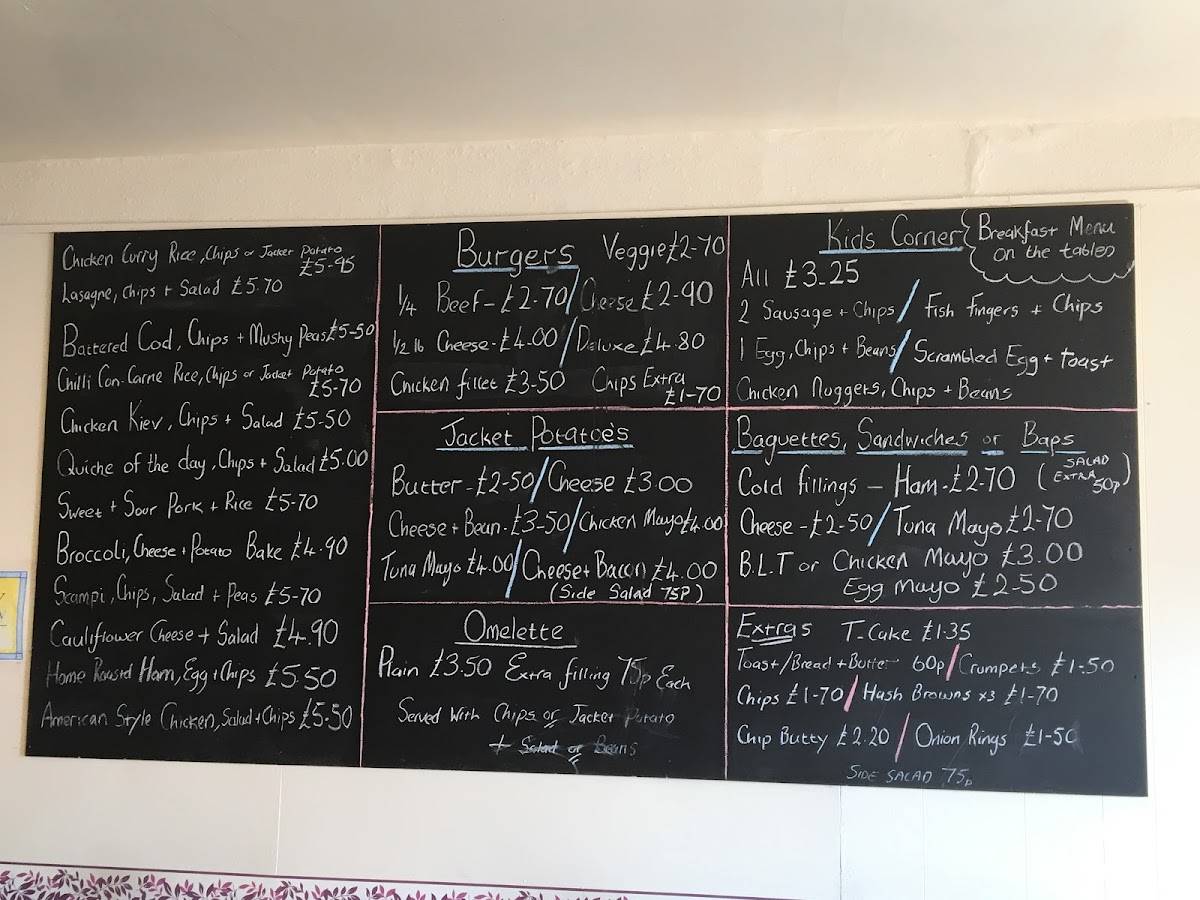 Chicken Curry Rice, Chips or Jacket Potato
£5-95
Lasagne, Chips + Salad £5.70
Battered Cod, Chips + Mushy Peas £5-50
Chilli Con-Carne Rice, Chips or Jacket Potato
£5-70
Chicken Kiev, Chips + Salad £5-50
Quiche of the day, Chips + Salad £5.00
Sweet + Sour Pork + Rice £5-70
Broccoli, Cheese + Potato Bake £4.90
Scampi, Chips, Salad + Peas £5-70
Cauliflower Cheese + Salad £4.90
Home Roasted Ham, Egg + Chips £5.50
American Style Chicken, Salad + Chips £5-50
Burgers Veggie £2-70
1/4 Beef - £2.70 / Cheese £2-90
1/2 lb Cheese - £4.00 / Deluxe £4.80
Chicken fillet £3-50 Chips Extra
£1-70
Jacket Potatoe's
Butter - £2-50 / Cheese £3.00
Cheese + Bean - £3-50 / Chicken Mayo £4.00
Tuna Mayo £4.00 / Cheese + Bacon £4.00
(Side Salad 75P)
Omelette
Plain £3.50 Extra filling 75p Each
Served With Chips or Jacket Potato
+ Salad or Beans
Kids Corner
Breakfast Menu
on the tables
All £3.25
2 Sausage + Chips / Fish fingers + Chips
1 Egg, Chips + Beans / Scrambled Egg + Toast
Chicken Nuggets, Chips + Beans
Baguettes, Sandwiches or Baps
Cold fillings - Ham - £2-70 (SALAD EXTRA 50p)
Cheese - £2-50 / Tuna Mayo £2-70
B.L.T or Chicken Mayo £3.00
Egg Mayo £2-50
Extras T-Cake £1-35
Toast/Bread + Butter 60p / Crumpets £1-50
Chips £1-70 / Hash Browns x3 £1-70
Chip Butty £2.20 / Onion Rings £1-50
SIDE SALAD 75p